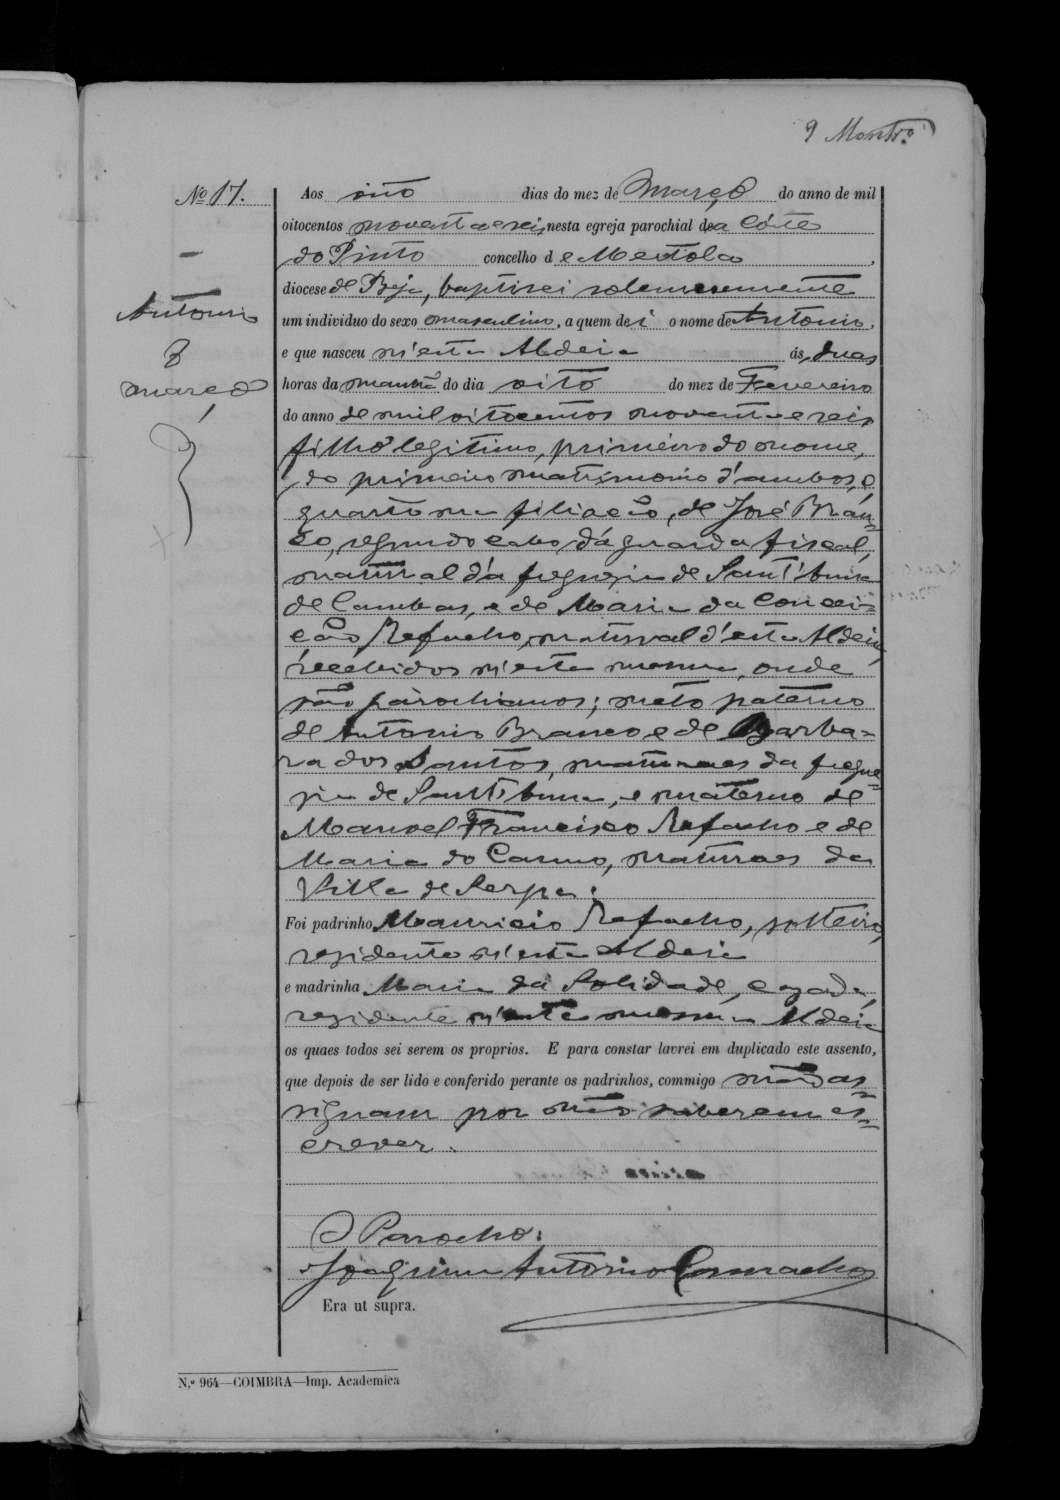 9 Montr.º
Nº 17.
Antonio
8
março
Aos oito dias do mez de Março do anno de mil
oitocentos noventa e seis, nesta egreja parochial da Côrte
do Pinto concelho de Mertola,
diocese de Beja, baptisei solemnemente
um individuo do sexo masculino, a quem dei o nome de Antonio,
e que nasceu n'esta Aldeia ás duas
horas da manhã do dia oito do mez de Fevereiro
do anno de mil oitocentos noventa e seis
filho legitimo, primeiro do nome,
do primeiro matrimonio d'ambos, e
quarto na filiação, de José Bran=
co, segundo cabo da guarda fiscal,
natural da freguezia de Sant'Anna
de Cambas, e de Maria da Concei=
ção Refacho, natural d'esta Aldeia,
recebidos n'esta mesma, onde
são parochianos; neto paterno
de Antonio Branco e de Barba=
ra dos Santos, naturaes da fregue=
zia de Sant'Anna, e materno de
Manoel Francisco Refacho e de
Maria do Carmo, naturaes da
Villa de Serpa.
Foi padrinho Mauricio Refacho, solteiro,
residente n'esta Aldeia
e madrinha Maria da Solidade, cazada,
residente n'esta mesma Aldeia
os quaes todos sei serem os proprios. E para constar lavrei em duplicado este assento,
que depois de ser lido e conferido perante os padrinhos, commigo não as=
signam por não saberem es=
crever.
O Parocho:
Joaquim Antonio Camacho
Era ut supra.
N.º 964—COIMBRA—Imp. Academica